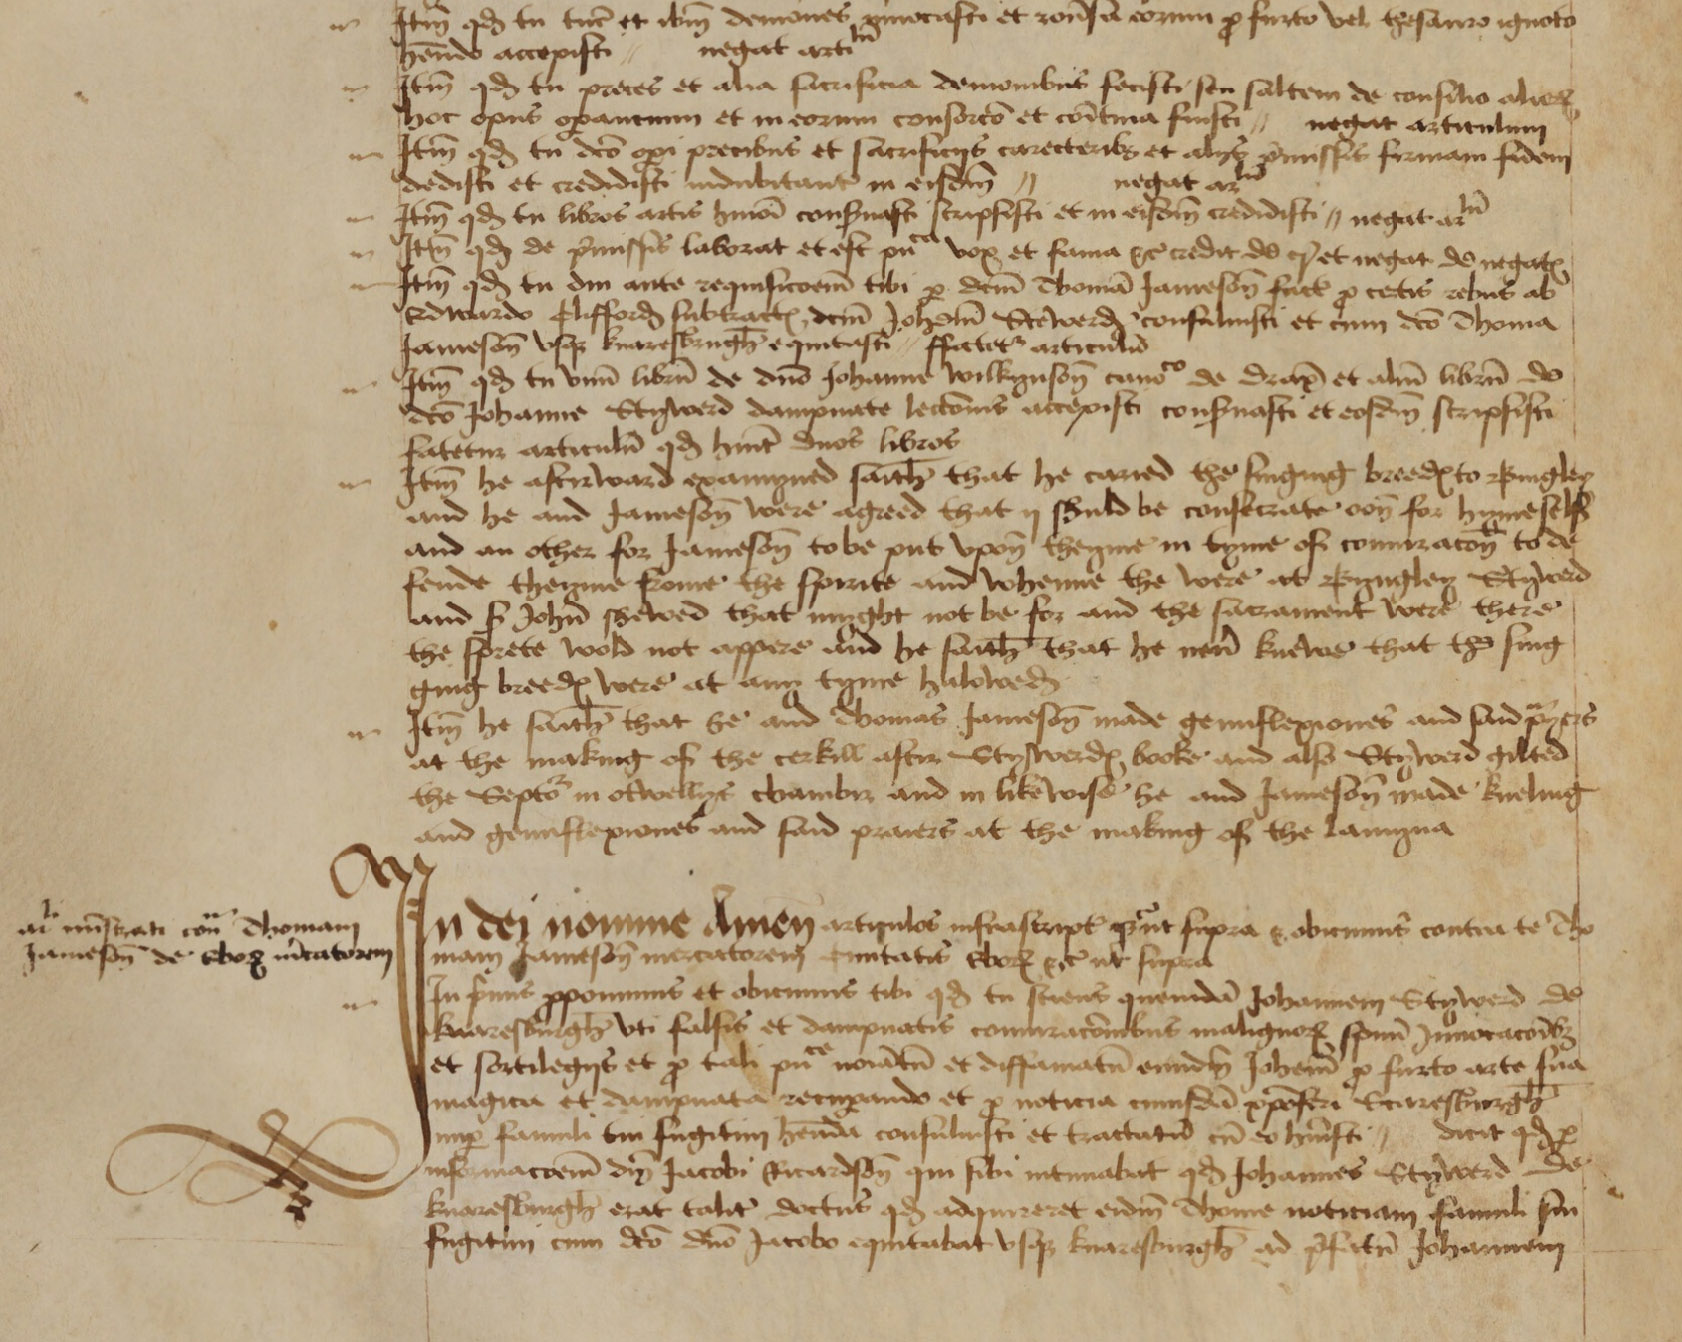 Itm̄ qd tu tūc et ibm̄ demones invocasti et consiliū eorum p furto vel thesauro ignoto
hēndo accepisti // negat articlm̄
Itm̄ qd tu preces et alia sacrificia demonibus fecisti seu saltem de consilio alior
hoc opus opantium et in eorum consorcō et comitiva fuisti // negat articulum
Itm̄ qd tu dcō opi precibus et sacrificijs carecteribz et alijs p̄missis firmam fidem
dedisti et credidisti indubitant in eisdm̄ // negat arlm̄
Itm̄ qd tu libros artis hmōi consvasti scripsisti et in eisdm̄ credidisti // negat arlm̄
Itm̄ qd de p̄missis laborat et est puca vox et fama &c credit de cr et negat de negat
Itm̄ qd tu diu ante requisicoem̄ tibi p dcm̄ Thomā Jamesoñ fact p certis rebus ab
Edwardo Cliffords subtract dcm̄ Johem̄ Steward consuluisti et cum dcō Thoma
Jamesoñ usqz knaresburgh equitasti // ffatet articulū
Itm̄ qd tu unū librū de dnō Johanne Wilkynsoñ canoco de Drax et aliū librū de
dcō Johanne Styward dampnate lectōnis accepisti consvasti et eosdm̄ scripsisti
fatetur articulū qd huit duos libros
Itm̄ he aftirward examyned saith that he caried the singing breeds to Bingley
and he and Jamesoñ were agreed that ij shuld be consecrate ooñ for hymeself
and an other for Jamesoñ to be put upoñ theyme in tyme of coniuracoñ to de
fende theyme frome the spirite and whenne the were at Byngley Styward
and sr Johñ shewed that myght not be for and the sacrament were there
the sprete wold not appere and he saith that he nevr knewe that the sing
ging breeds were at any tyme halowed
Itm̄ he saith that he and Thomas Jamesoñ made genuflexiones and said prayers
at the making of the cerkill aftir Stywards booke and also Styward gilted
the Septor in otwellys chambr and in likewise he and Jamesoñ made kneling
and genuflexiones and said praiers at the making of the lamyna
arli m̄strati con̄ Thomam
Jamesoñ de Ebor m̄catorem
In dei nomine Amen articulos infrascript prout supra & obicimus contra te Tho
mam Jamesoñ mercatorem civitatis Ebor &c ut supra
In p̄mis pponimus et obicimus tibi qd tu sciens quemdā Johannem Styward de
knaresburgh uti falsis et dampnatis coniuracōnibus malignor spūm invocacōibz
et sortilegijs et p tali puce noiatū et diffamatū eundm̄ Johem̄ p furto arte sua
magica et dampnata recupando et p noticia cuiusdā xpoferi Scaresburgh
nup famuli tui fugitivi hēnda consuluisti et tractatū cū eo huisti // dicit qd p
informacoem̄ dnī Jacobi Ricardsoñ qui sibi intimabat qd Johannes Styward de
knaresburgh erat talit doctus qd adquireret eidm̄ Thome noticiam famuli sui
fugitivi cum dcō dnō Jacobo equitabat usqz knaresburgh ad p̄fatū Johannem